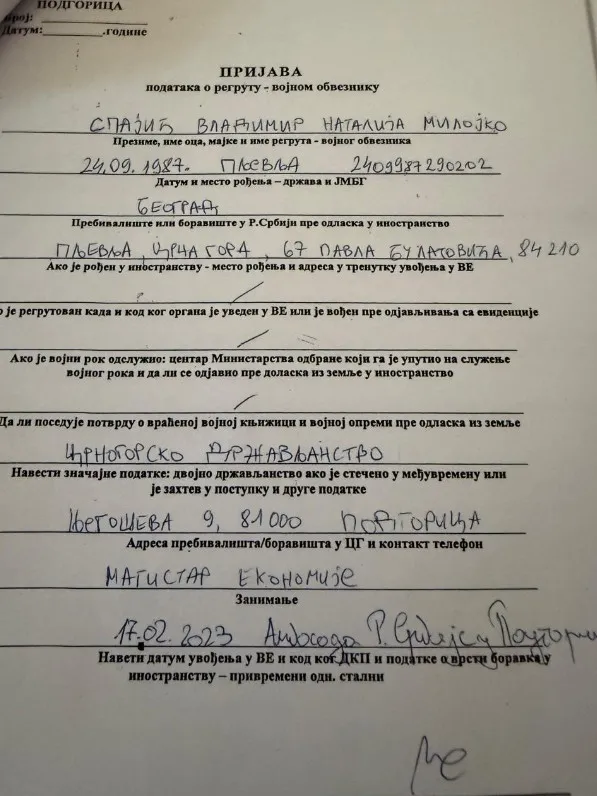 ПОДГОРИЦА
Број: ____________
Датум:__________.године
ПРИЈАВА
података о регруту - војном обвезнику
СПАЈИЋ ВЛАДИМИР НАТАЛИЈА МИЛОЈКО
Презиме, име оца, мајке и име регрута - војног обвезника
24.09.1987. ПЉЕВЉА 2409987290202
Датум и место рођења – држава и ЈМБГ
БЕОГРАД
Пребивалиште или боравиште у Р.Србији пре одласка у иностранство
ПЉЕВЉА, ЦРНА ГОРА, 67 ПАВЛА БУЛАТОВИЋА, 84210
Ако је рођен у иностранству - место рођења и адреса у тренутку увођења у ВЕ
о је регрутован када и код ког органа је уведен у ВЕ или је вођен пре одјављивања са евиденције
Ако је војни рок одслужио: центар Министарства одбране који га је упутио на служење
војног рока и да ли се одјавио пре доласка из земље у иностранство
Да ли поседује потврду о враћеној војној књижици и војној опреми пре одласка из земље
ЦРНОГОРСКО ДРЖАВЉАНСТВО
Навести значајне податке: двојно држављанство ако је стечено у међувремену или
је захтев у поступку и друге податке
ЊЕГОШЕВА 9, 81000 ПОДГОРИЦА
Адреса пребивалишта/боравишта у ЦГ и контакт телефон
МАГИСТАР ЕКОНОМИЈЕ
Занимање
17.02.2023 Амбасада Р. Србије у Подгори
Навети датум увођења у ВЕ и код ког ДКП и податке о врсти боравка у
иностранству – привремени одн. стални